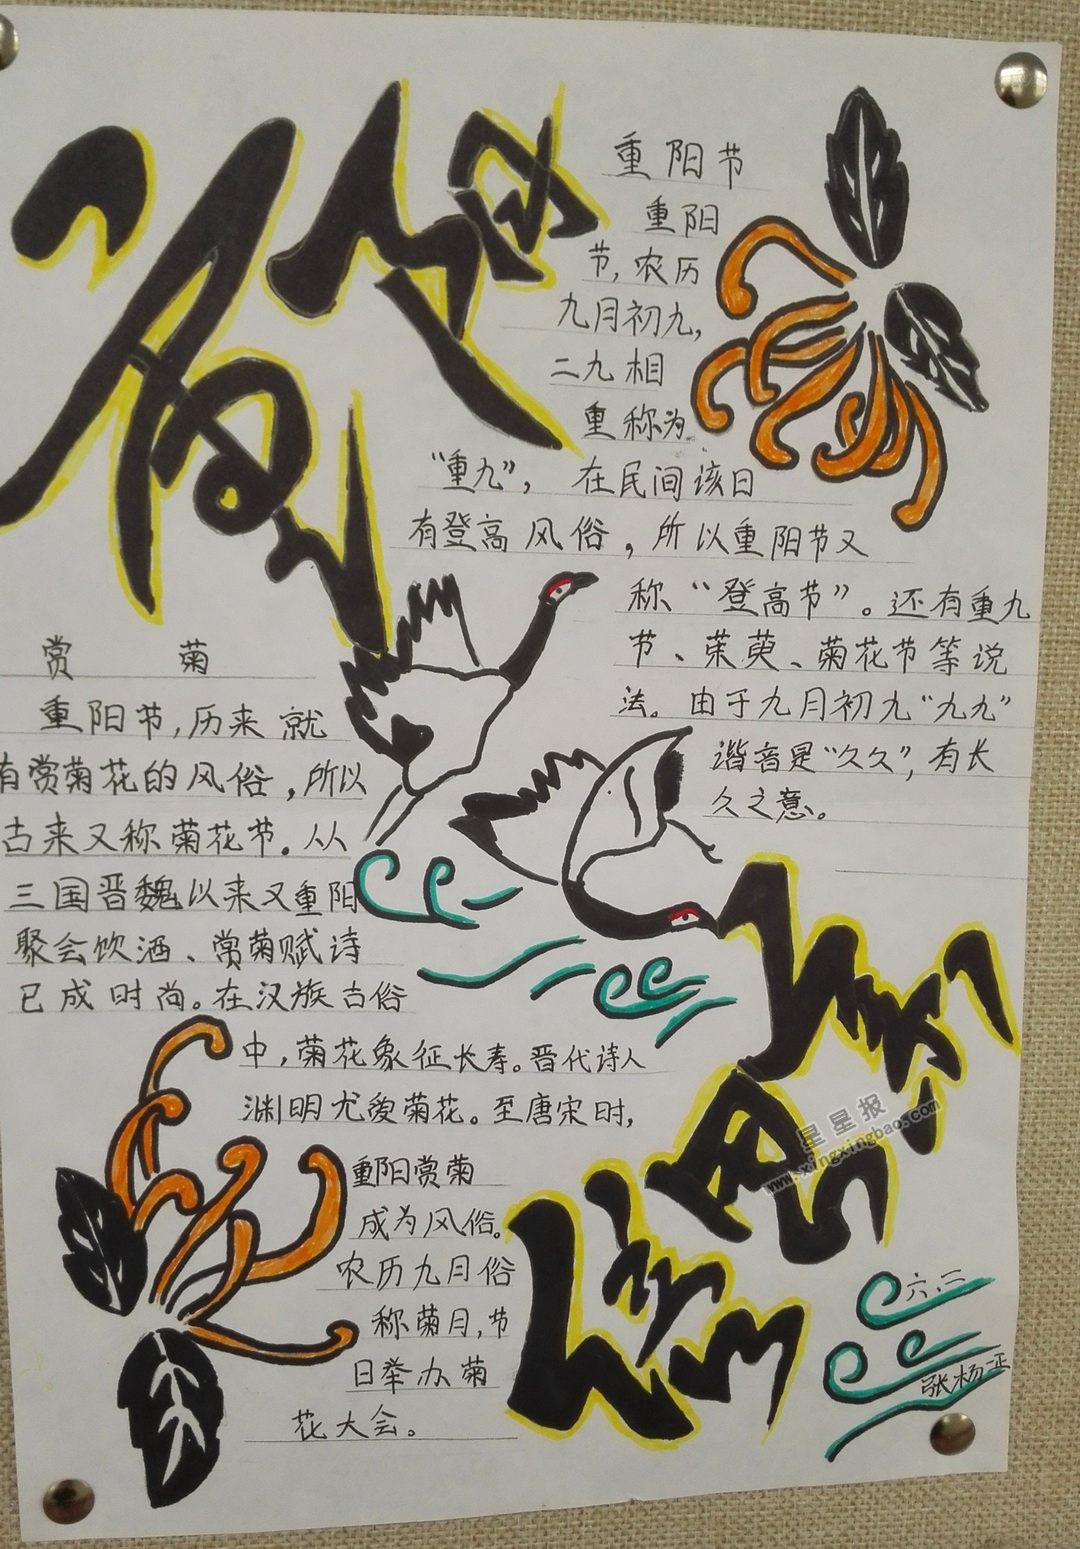 重阳
重阳节
重阳
节，农历
九月初九，
二九相
重称为
“重九”，在民间该日
有登高风俗，所以重阳节又
称“登高节”。还有重九
节、茱萸、菊花节等说
法。由于九月初九“九九”
谐音是“久久”，有长
久之意。
赏菊
重阳节，历来就
有赏菊花的风俗，所以
古来又称菊花节。从
三国晋魏以来又重阳
聚会饮酒、赏菊赋诗
已成时尚。在汉族古俗
中，菊花象征长寿。晋代诗人
渊明尤爱菊花。至唐宋时，
重阳赏菊
成为风俗。
农历九月俗
称菊月，节
日举办菊
花大会。
星星报
www.xingxingbao.com
六、二
张杨